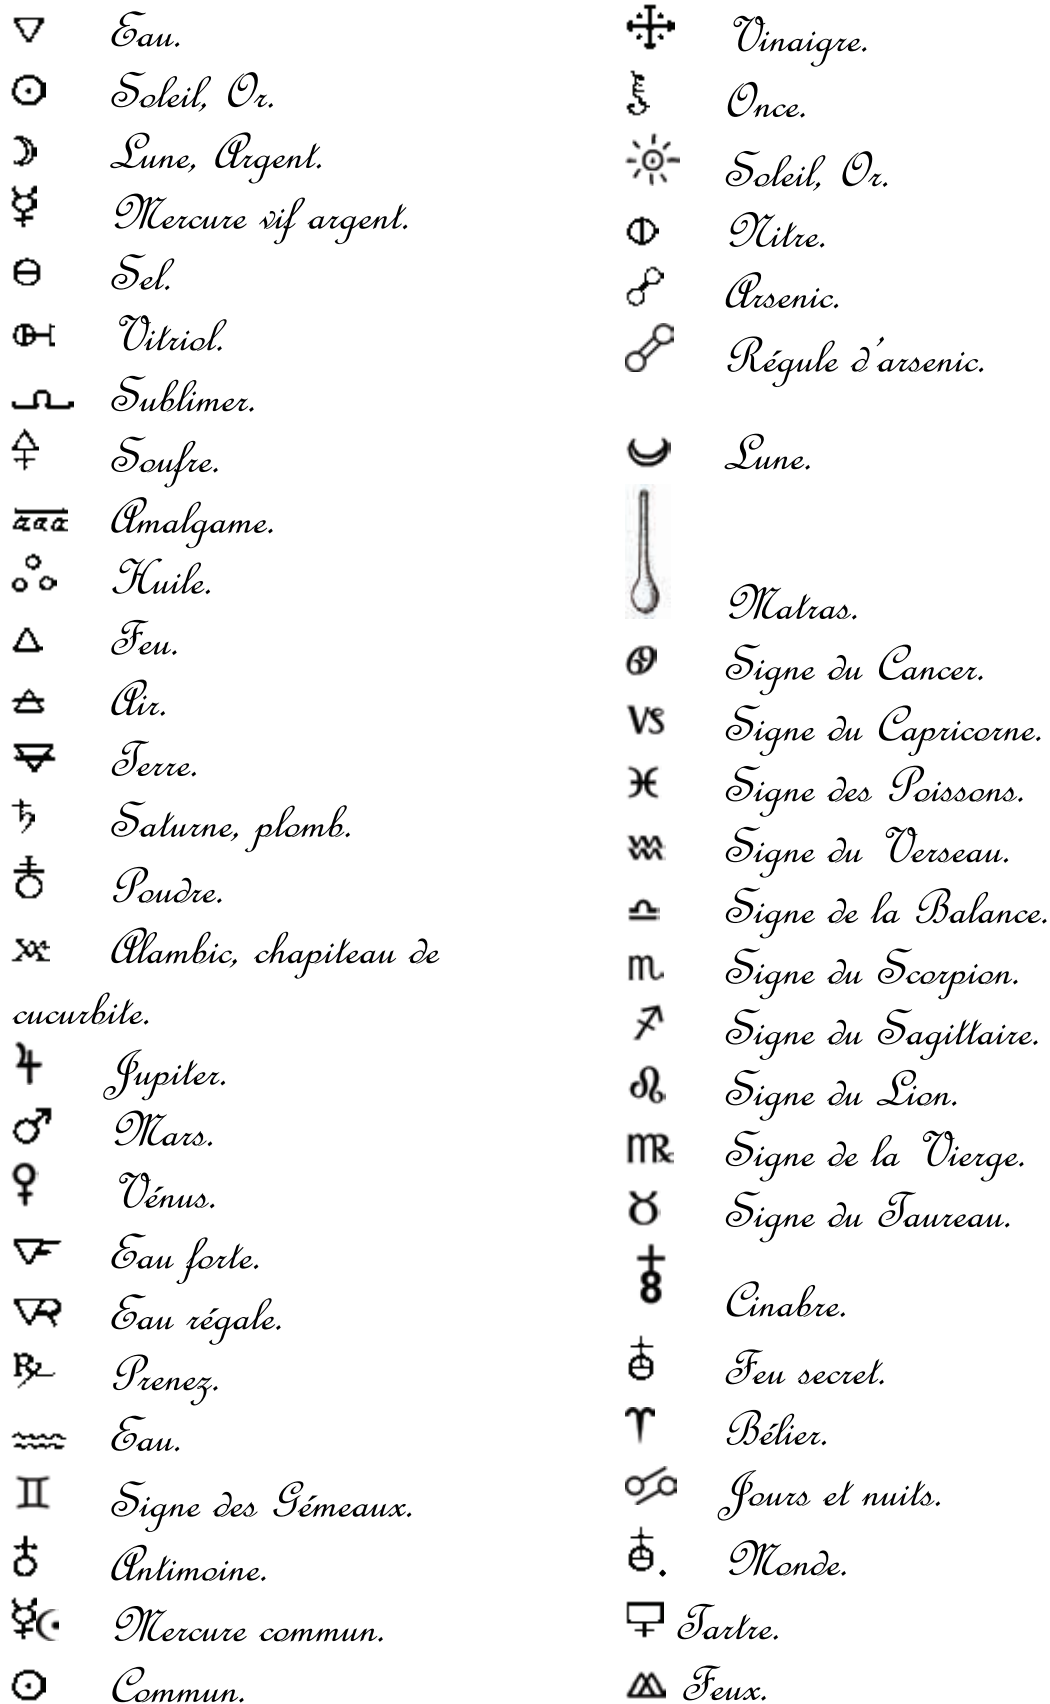 Eau.
Soleil, Or.
Lune, Argent.
Mercure vif argent.
Sel.
Vitriol.
Sublimer.
Soufre.
Amalgame.
Huile.
Feu.
Air.
Terre.
Saturne, plomb.
Poudre.
Alambic, chapiteau de
cucurbite.
Jupiter.
Mars.
Vénus.
Eau forte.
Eau régale.
Prenez.
Eau.
Signe des Gémeaux.
Antimoine.
Mercure commun.
Commun.
Vinaigre.
Once.
Soleil, Or.
Nitre.
Arsenic.
Régule d'arsenic.
Lune.
Matras.
Signe du Cancer.
Signe du Capricorne.
Signe des Poissons.
Signe du Verseau.
Signe de la Balance.
Signe du Scorpion.
Signe du Sagittaire.
Signe du Lion.
Signe de la Vierge.
Signe du Taureau.
Cinabre.
Feu secret.
Bélier.
Jours et nuits.
Monde.
Tartre.
Feux.